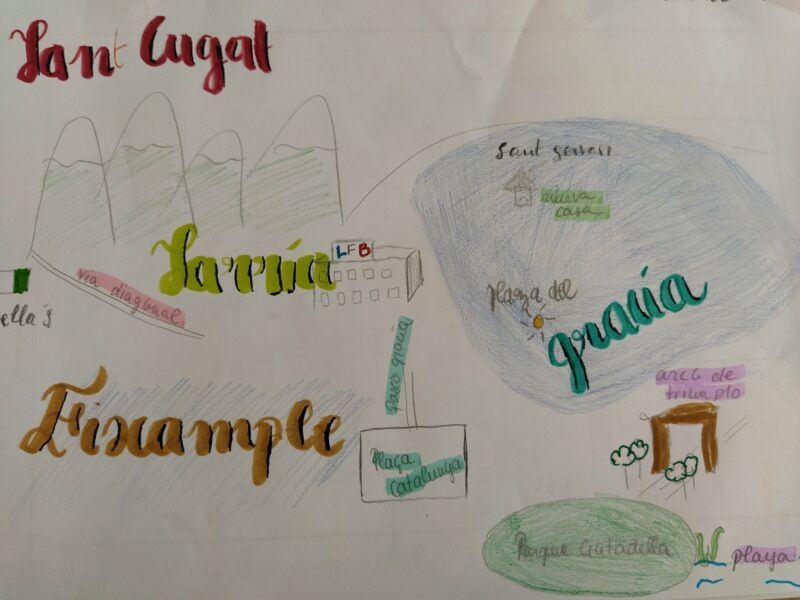 Sant Cugat
Sant Gervasi
nueva
casa
Sarría
LFB
via diagonal
ella's
plaza del
gracía
paseo gracia
arco de
triumplo
Eixample
Plaça
Catalunya
Parque Ciutadella
playa